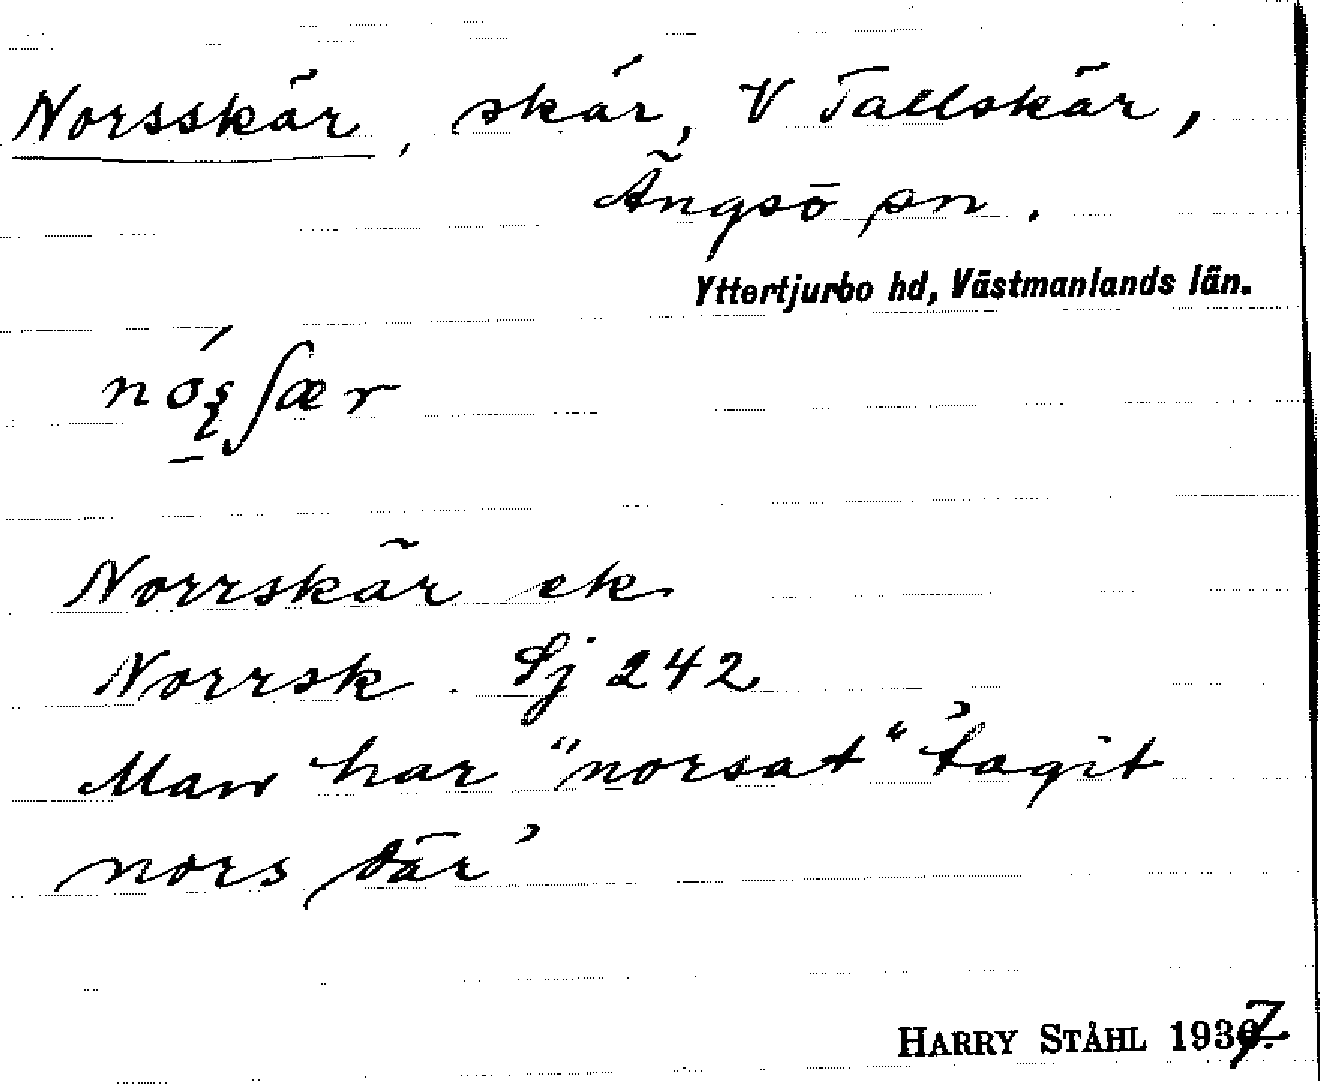 Norsskär, skär, V Tallskär,
Ängsö sn.
Yttertjurbo hd, Västmanlands län.
nó̱ʂʃær
Norrskär ek
Norrsk. Sj 242
Man har "norsat" 'tagit
nors där'
HARRY STÅHL 1937.